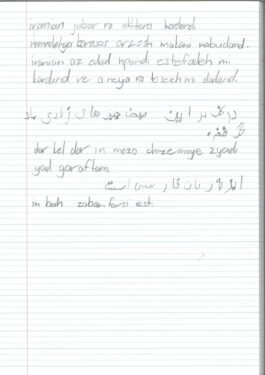 iranian jabar ra ekhtera kardand.
arzesh makani nabudand.
iranian az edad hendi estefadeh mi
kardand ve aneya ra toseeh mi dadand.
در کل در این های زیادی یاد
گرفتم.
dar kel dar in mozo chize maye zyadi
yad garaftam.
زبان فارسی است
in bah zaban farsi est